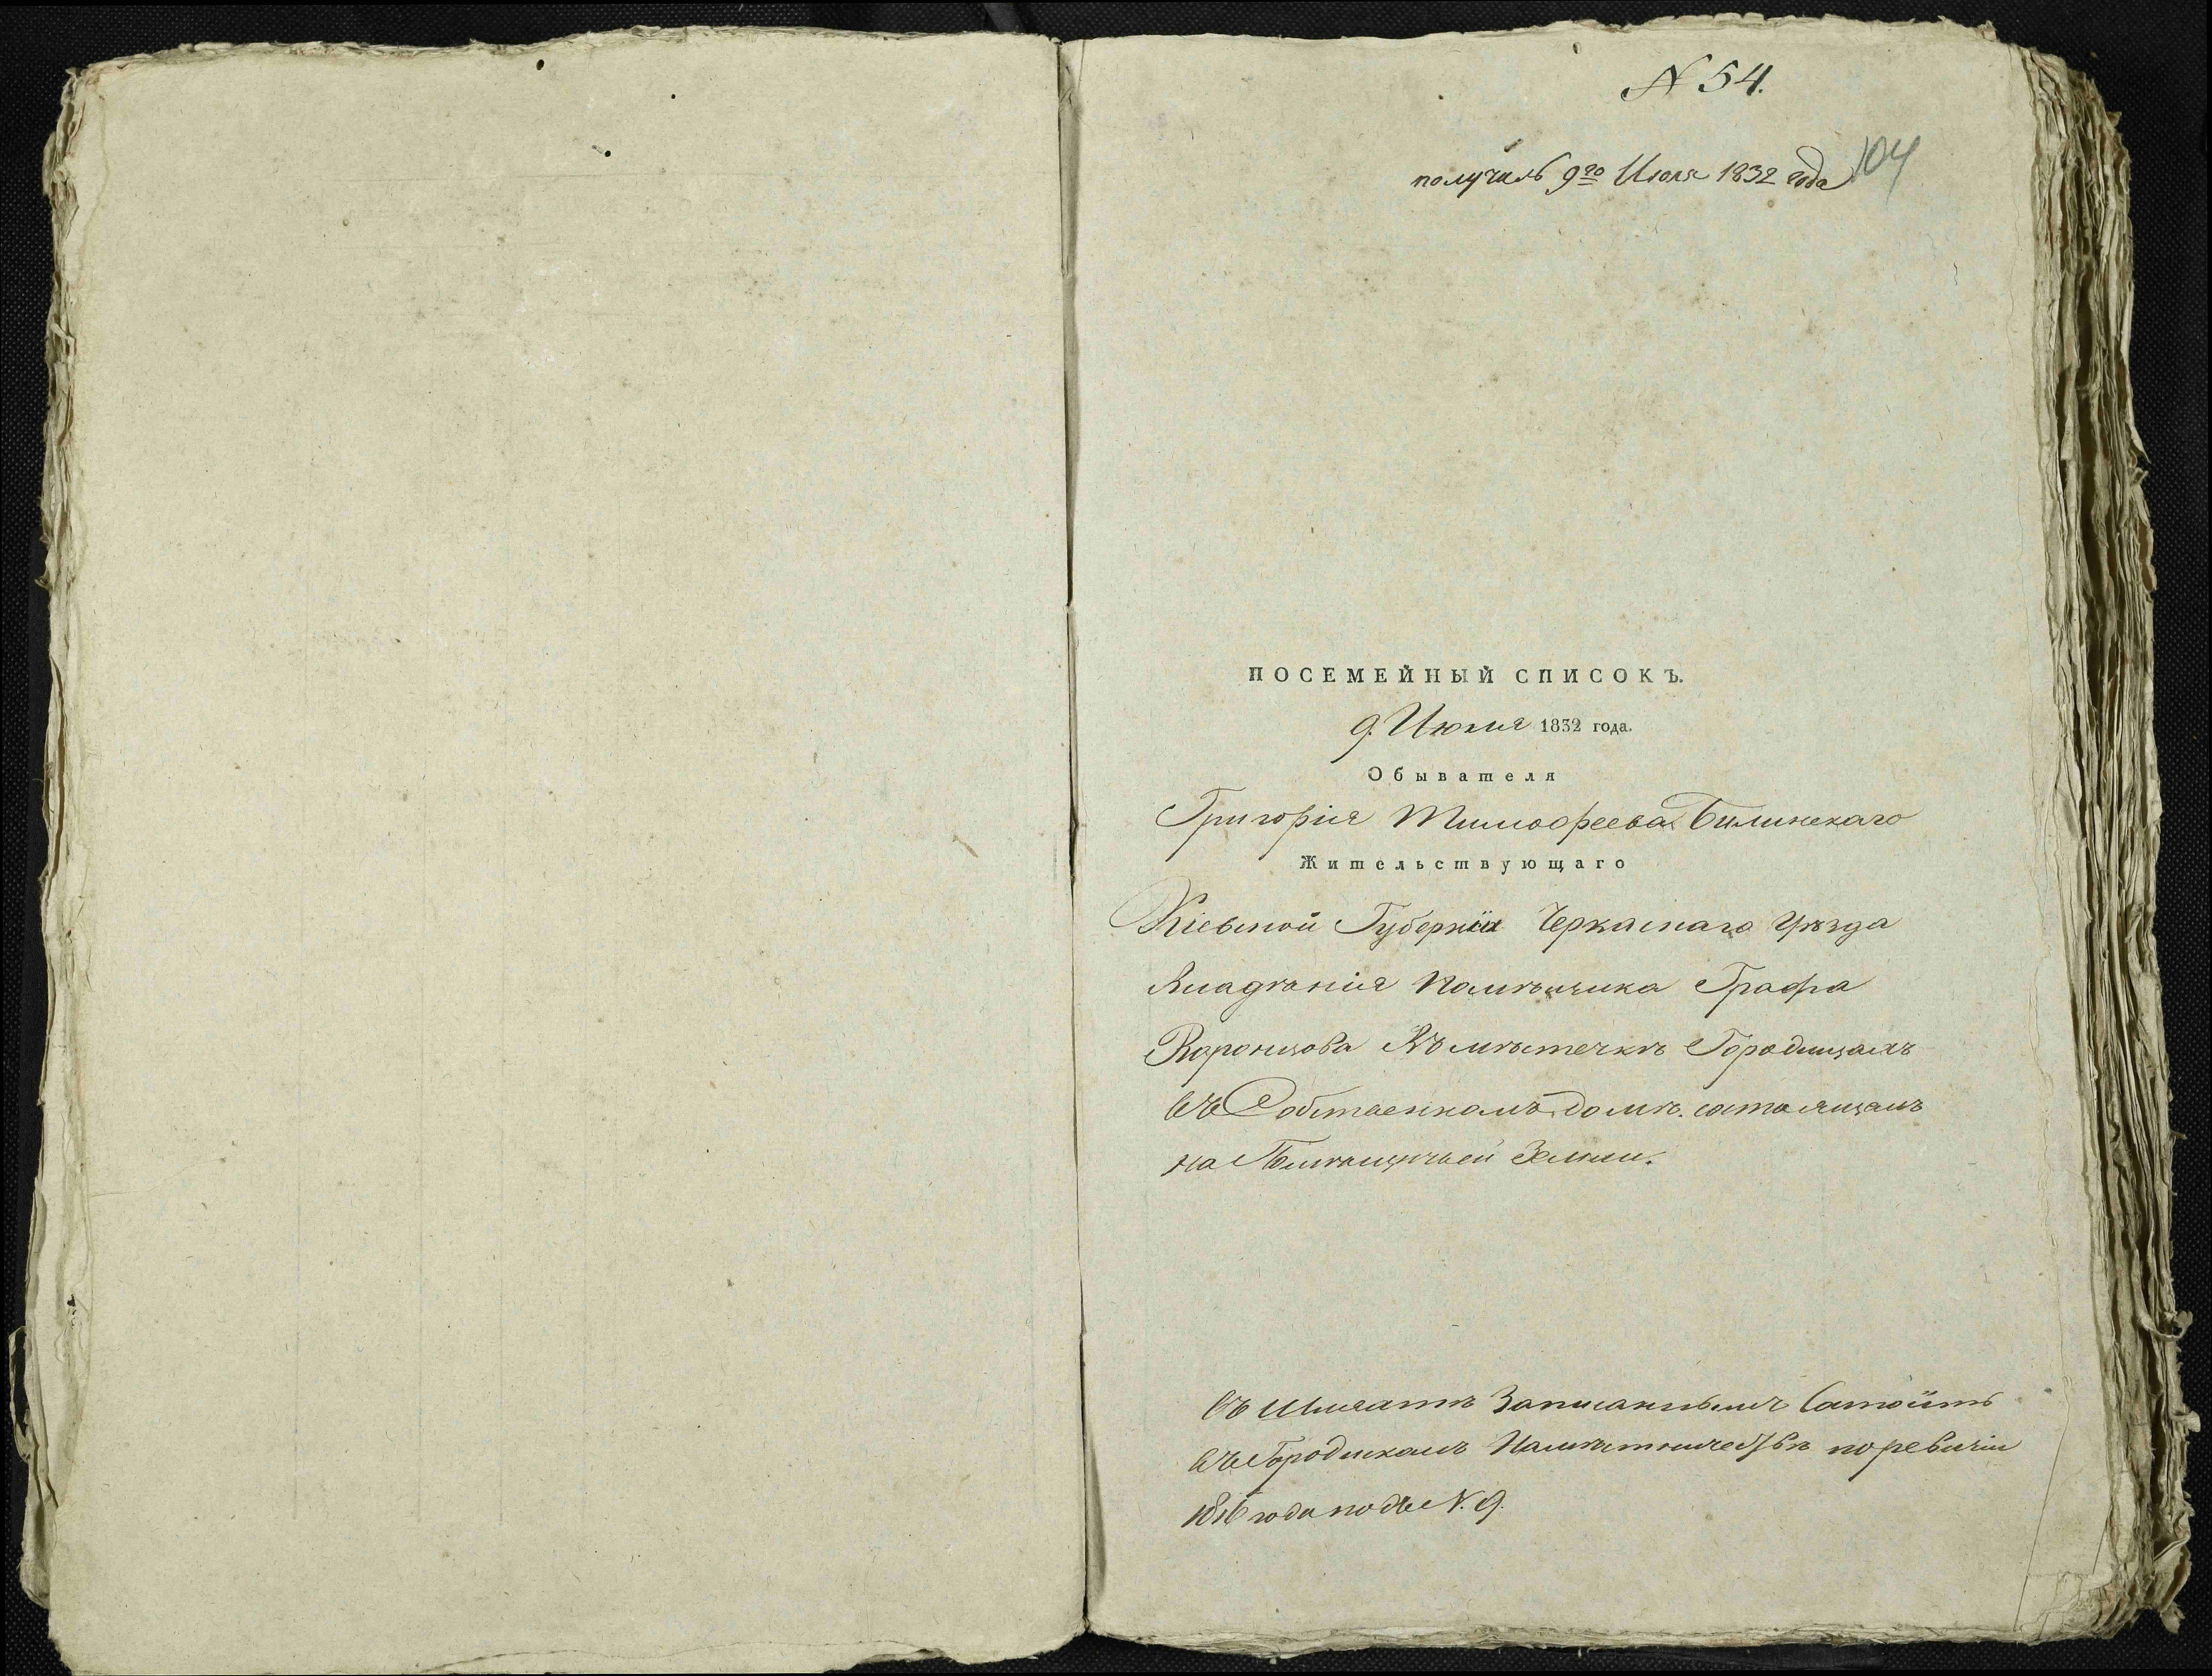 N 54.
получилъ 9го Июля 1832 года
104
ПОСЕМЕЙНЫЙ СПИСОКЪ.
9. Июля 1832 года.
Обывателя
Григорія Тимофеева Билинскаго
Жительствующаго
Кіевской Губерніи Черкаскаго Уѣзда
Владѣнія Помѣщика Графа
Воронцова Въ мѣстечкѣ Городищахъ
въ Собственномъ домѣ. состоящемъ
на Помѣщичьей Земли.
Въ Шляхтѣ Записаннымъ Состоитъ
въ Городискомъ Намѣстничествѣ по ревизіи
1816 года подъ N. 9.